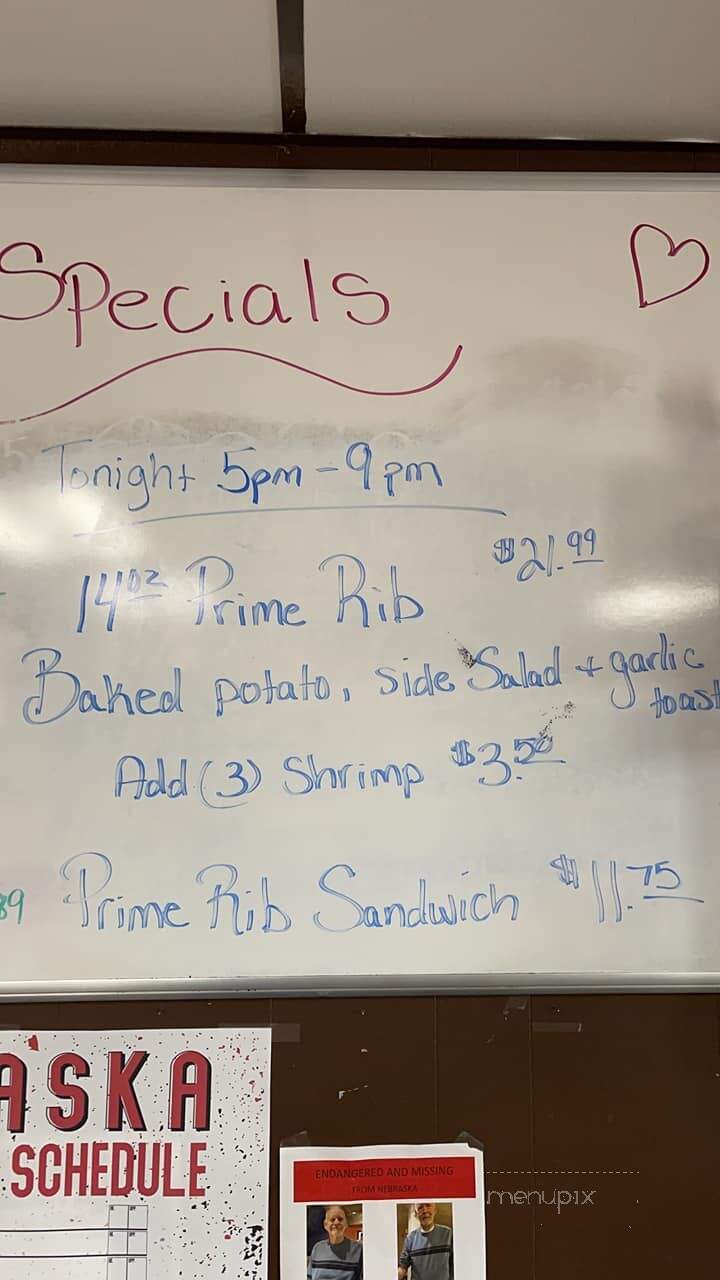 Specials
Tonight 5pm - 9pm
14oz Prime Rib $21.99
Baked potato, side Salad + garlic
toast
Add (3) Shrimp $3.50
89 Prime Rib Sandwich $11.75
ASKA
SCHEDULE
ENDANGERED AND MISSING
FROM NEBRASKA
menupix